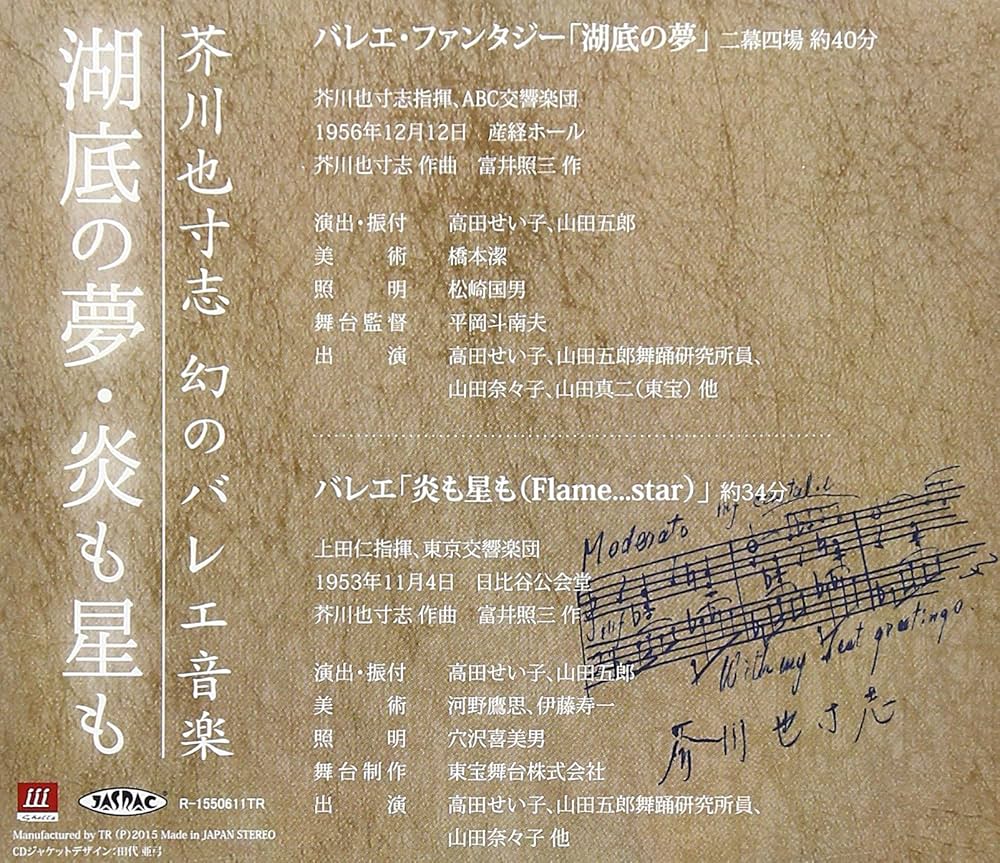 湖底の夢・炎も星も
芥川也寸志 幻のバレエ音楽
バレエ・ファンタジー「湖底の夢」 二幕四場 約40分
芥川也寸志指揮、ABC交響楽団
1956年12月12日　産経ホール
芥川也寸志 作曲　富井照三 作
演出・振付　高田せい子、山田五郎
美術　橋本潔
照明　松崎国男
舞台監督　平岡斗南夫
出演　高田せい子、山田五郎舞踊研究所員、
山田奈々子、山田真二（東宝） 他
バレエ「炎も星も（Flame...star）」 約34分
上田仁指揮、東京交響楽団
1953年11月4日　日比谷公会堂
芥川也寸志 作曲　富井照三 作
演出・振付　高田せい子、山田五郎
美術　河野鷹思、伊藤寿一
照明　穴沢喜美男
舞台制作　東宝舞台株式会社
出演　高田せい子、山田五郎舞踊研究所員、
山田奈々子 他
Moderato
With my best greetings.
芥川也寸志
JASRAC R-1550611TR
Manufactured by TR (P)2015 Made in JAPAN STEREO
CDジャケットデザイン：田代 亜弓